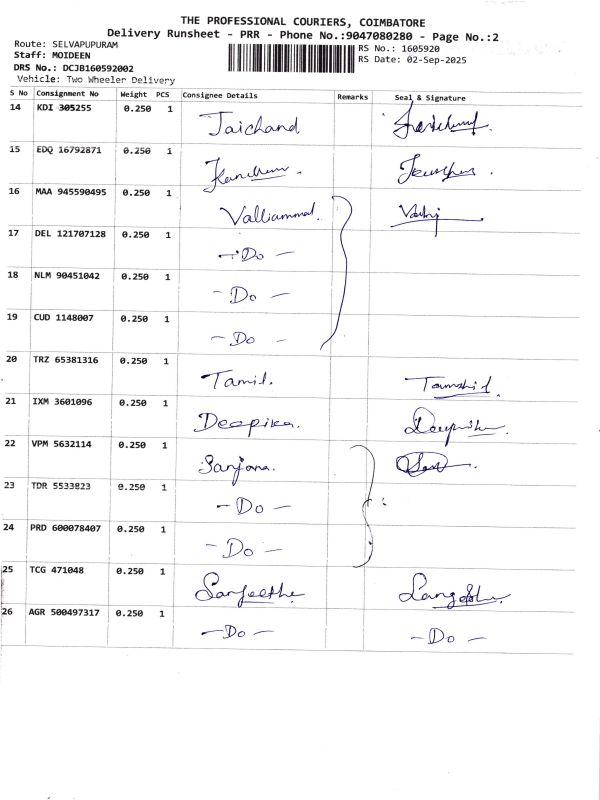 THE PROFESSIONAL COURIERS, COIMBATORE
Delivery Runsheet - PRR - Phone No.:9047080280 - Page No.:2
Route: SELVAPUPURAM
RS No.: 1605920
Staff: MOIDEEN
RS Date: 02-Sep-2025
DRS No.: DCJB160592002
Vehicle: Two Wheeler Delivery
S No Consignment No Weight PCS Consignee Details Remarks Seal & Signature
14 KDI 305255 0.250 1 Jaichand
15 EDQ 16792871 0.250 1
16 MAA 945590495 0.250 1 Valliammal
17 DEL 121707128 0.250 1 - Do -
18 NLM 90451042 0.250 1 - Do -
19 CUD 1148007 0.250 1 - Do -
20 TRZ 65381316 0.250 1 Tamil.
21 IXM 3601096 0.250 1 Deepika.
22 VPM 5632114 0.250 1 Sanjana.
23 TDR 5533823 0.250 1 - Do -
24 PRD 600078407 0.250 1 - Do -
25 TCG 471048 0.250 1
26 AGR 500497317 0.250 1 - Do - - Do -